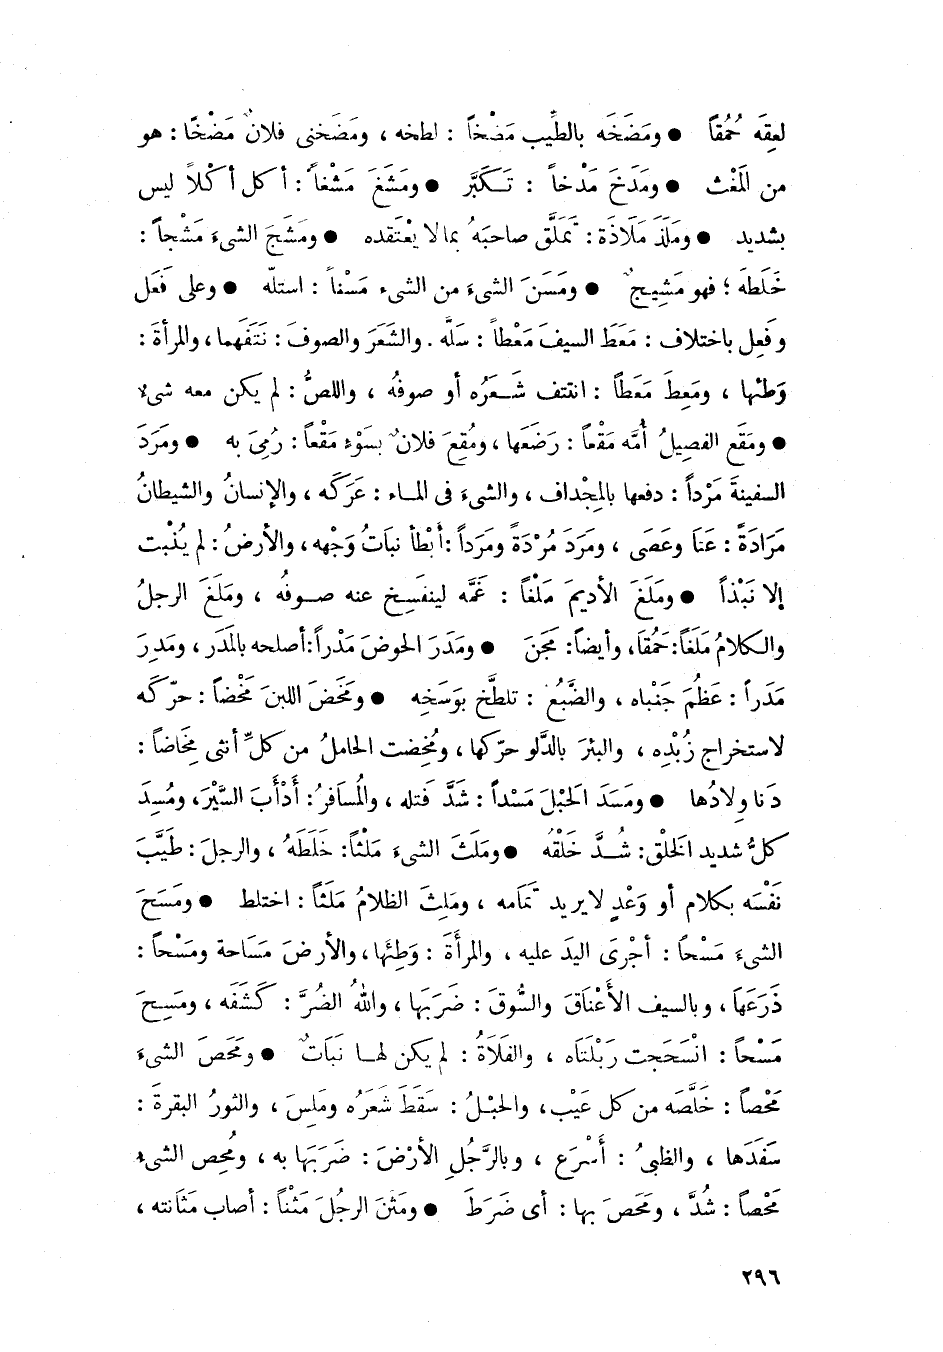 لعِقَه حُمُقاً ● ومَضَخَه بالطِّيب مَضْخاً : لطخه ، ومَضَخنى فلانٌ مَضْخًا : هو
من المَغْث ● ومَدَخَ مَدْخاً : تَكَبَّر ● ومَشَغَ مَشْغاً : أكل أكْلاً ليس
بشديد ● ومَلَذَ مَلَاذَة : تَمَلَّق صاحبَهُ بما لا يعْتَقده ● ومَشَجَ الشىءَ مَشْجاً :
خَلَطَه ؛ فهو مَشِيجٌ ● ومَسَنَ الشىءَ من الشىء مَسْناً : استلّه ● وعلى فَعَل
وفَعِل باختلاف : مَعَطَ السيفَ مَعْطاً : سَلَّه . والشَعَرَ والصوفَ : نَتَفَهما ، والمرأةَ :
وَطئها ، ومَعِطَ مَعَطاً : انتتف شَعَرُه أو صوفُه ، واللصُّ : لم يكن معه شىء
● ومَقَع الفصِيلُ أُمَّه مَقْعاً : رَضَعَها ، ومُقِعَ فلانٌ بسَوْءٍ مَقْعاً : رُمِىَ به ● ومَرَدَ
السفينةَ مَرْداً : دفعها بالمِجْداف ، والشىءَ فى الماء : عَرَكَه ، والإنسانُ والشيطانُ
مَرَادَةً : عَتَا وعَصَى ، ومَرَدَ مُرْدَةً ومَرَداً : أبْطأ نبَاتُ وَجْهه ، والأرضُ : لم يُنْبت
إلا نَبْذاً ● ومَلَغَ الأديمَ مَلْغاً : غَمَّه لينفَسِخ عنه صوفُه ، ومَلَغَ الرجلُ
والكلامُ مَلَغاً : حَمُقاَ ، وأيضاً : مَجَنَ ● ومَدَرَ الحوضَ مَدْراً : أصلحه بالمَدَر ، ومَدِرَ
مَدَراً : عَظُمَ جَنْباه ، والضَّبُعُ : تلطَّخ بوَسَخِه ● ومَخَضَ اللبنَ مَخْضاً : حرّكَه
لاستخراج زُبْدِه ، والبئرَ بالدَّلو حرّكها ، ومُخِضت الحاملُ من كلِّ أنثى مِخَاضاً :
دَنا وِلادُها ● ومَسَدَ الحَبْلَ مَسْداً : شَدَّ فَتله ، والمُسَافرُ : أدْأبَ السَّيْرَ ، ومُسِدَ
كلُّ شديد الخلْق : شُدَّ خَلْقُه ● ومَلَثَ الشىءَ مَلْثاً : خَلَطَهُ ، والرجلَ : طَيَّبَ
نَفْسَه بكلام أو وَعْدٍ لا يريد تمَامه ، ومَلِثَ الظلامُ مَلَثاً : اختلط ● ومَسَحَ
الشىءَ مَسْحًا : أجْرَى اليدَ عليه ، والمرأَةَ : وَطِئَها ، والأرضَ مَسَاحة ومَسْحاً :
ذَرَعَهَا ، وبالسيف الأعْنَاقَ والسُّوقَ : ضَرَبَها ، واللهُ الضُرَّ : كَشَفَه ، ومَسِحَ
مَسْحاً : انْسَحَجت رَبْلتَاه ، والفَلَاةُ : لم يكن لها نَبَاتٌ ● ومَحَصَ الشىءَ
مَحْصاً : خَلَّصَه من كل عَيْب ، والحبْلُ : سَقَطَ شَعَرُه ومَلِسَ ، والثورُ البقرةَ :
سَفَدَها ، والظبىُ : أَسْرَع ، وبالرَّجْلِ الأرْضَ : ضَرَبَها به ، ومُحِص الشىءُ
مَحْصاً : شُدَّ ، ومَحَصَ بها : أى ضَرَطَ ● ومَثَنَ الرجُلَ مَثْناً : أصاب مَثَانته ،
٢٩٦